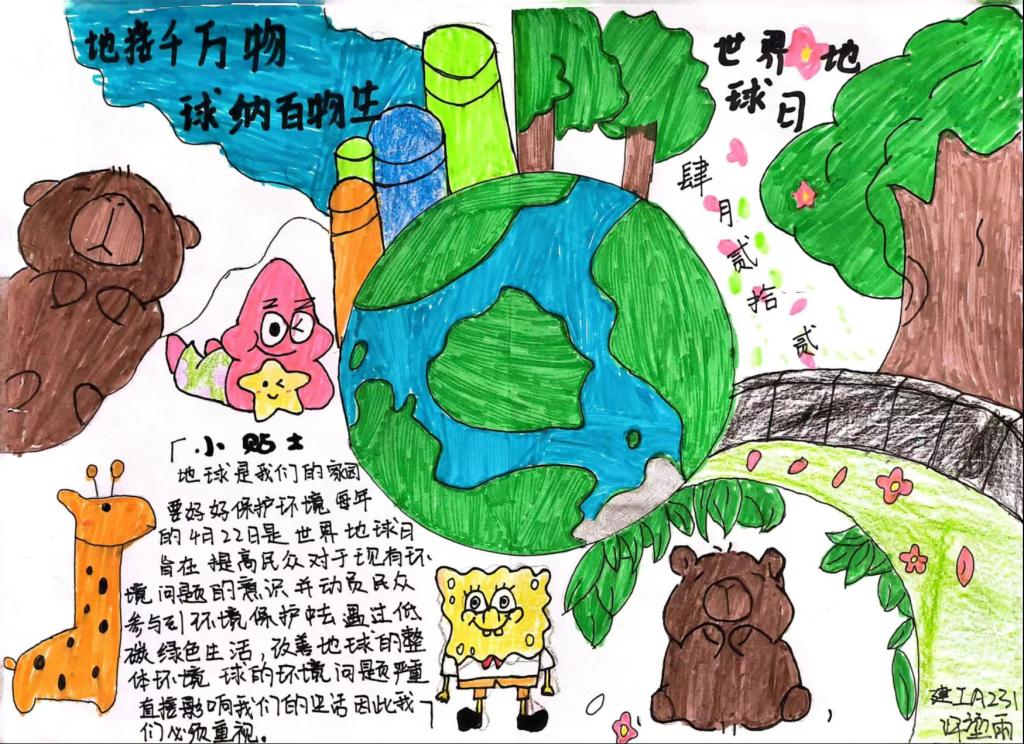 地接千万物
球纳百物生
世界地
球日
肆
月
贰
拾
贰
「小贴士
地球是我们的家园
要好好保护环境 每年
的4月22日是世界地球日
旨在提高民众对于现有环
境问题的意识并动员民众
参与到环境保护中去 通过低
碳绿色生活,改善地球的整
体环境 球的环境问题严重
直接影响我们的生活因此我
们必须重视。」
建工A231
雨